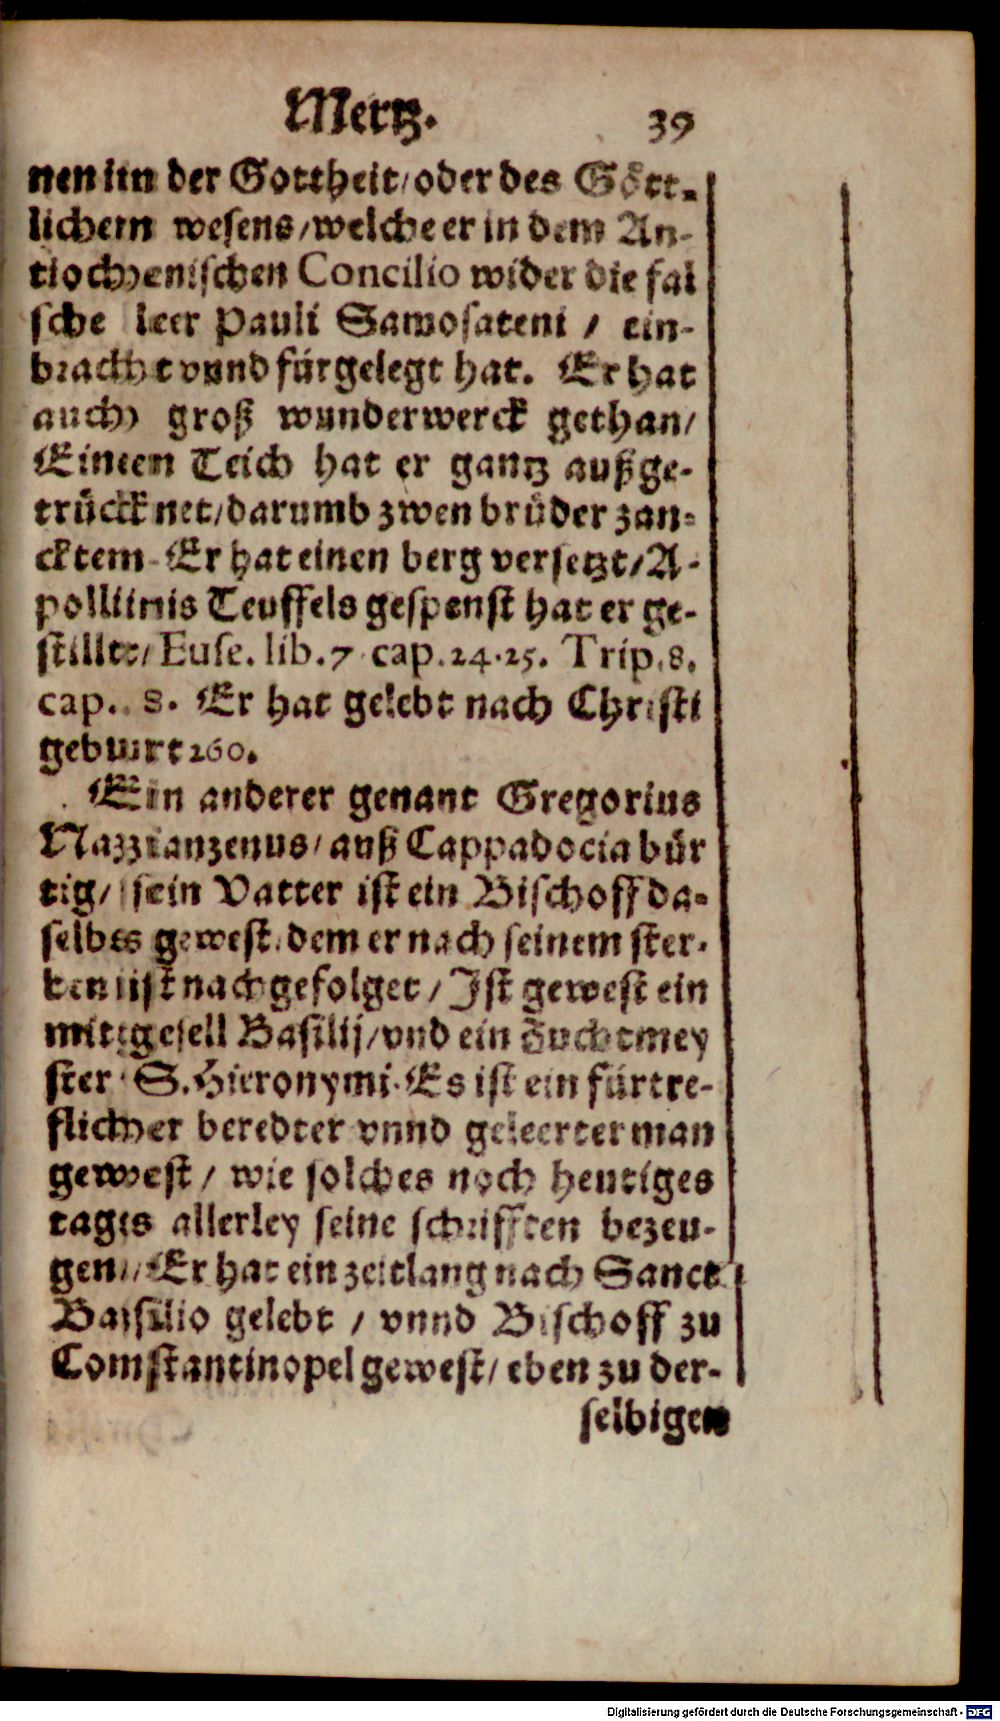 Mertz. 39
nen inn der Gottheit/oder des Gött-
lichem wesens/welche er in dem An-
tiochenischen Concilio wider die fal
sche leer Pauli Samosateni / ein-
bracht vnnd fürgelegt hat. Er hat
auch groß wunderwerck gethan/
Einen Teich hat er gantz außge-
trücknet/darumb zwen brüder zan-
ckten. Er hat einen berg versetzt/A-
pollinis Teuffels gespenst hat er ge-
stillet/Euse. lib. 7 cap. 24. 25. Trip. 8.
cap. 8. Er hat gelebt nach Christi
geburt 260.
Ein anderer genant Gregorius
Nazianzenus/auß Cappadocia bür
tig/ sein Vatter ist ein Bischoff da-
selbs gewest/dem er nach seinem ster-
ben ist nachgefolget/ Ist gewest ein
mitgesell Basilij/vnd ein Zuchtmey
ster S. Hieronymi. Es ist ein fürtre-
flicher beredter vnnd geleerter man
gewest/ wie solches noch heutiges
tages allerley seine schrifften bezeu-
gen/ Er hat ein zeitlang nach Sanct
Basilio gelebt / vnnd Bischoff zu
Constantinopel gewest/eben zu der-
selbigen
Digitalisierung gefördert durch die Deutsche Forschungsgemeinschaft - DFG